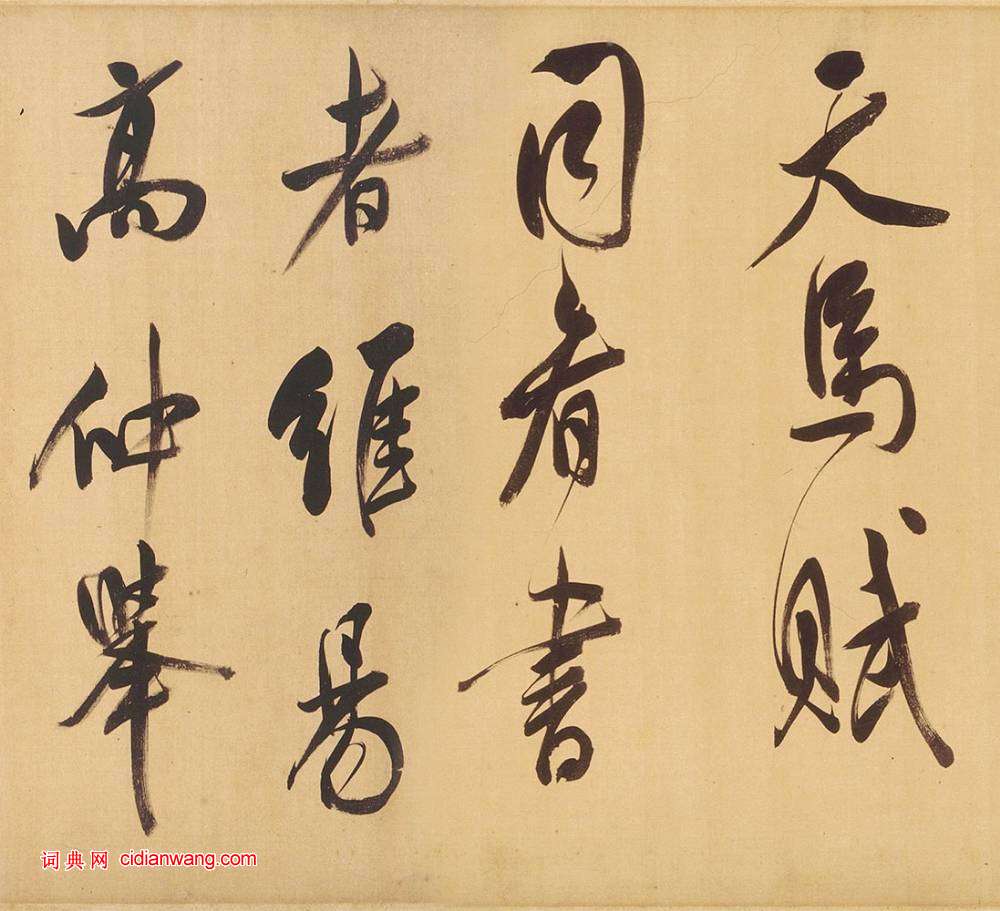 天馬賦
同看書
者維昜
高仲舉
词典网 cidianwang.com